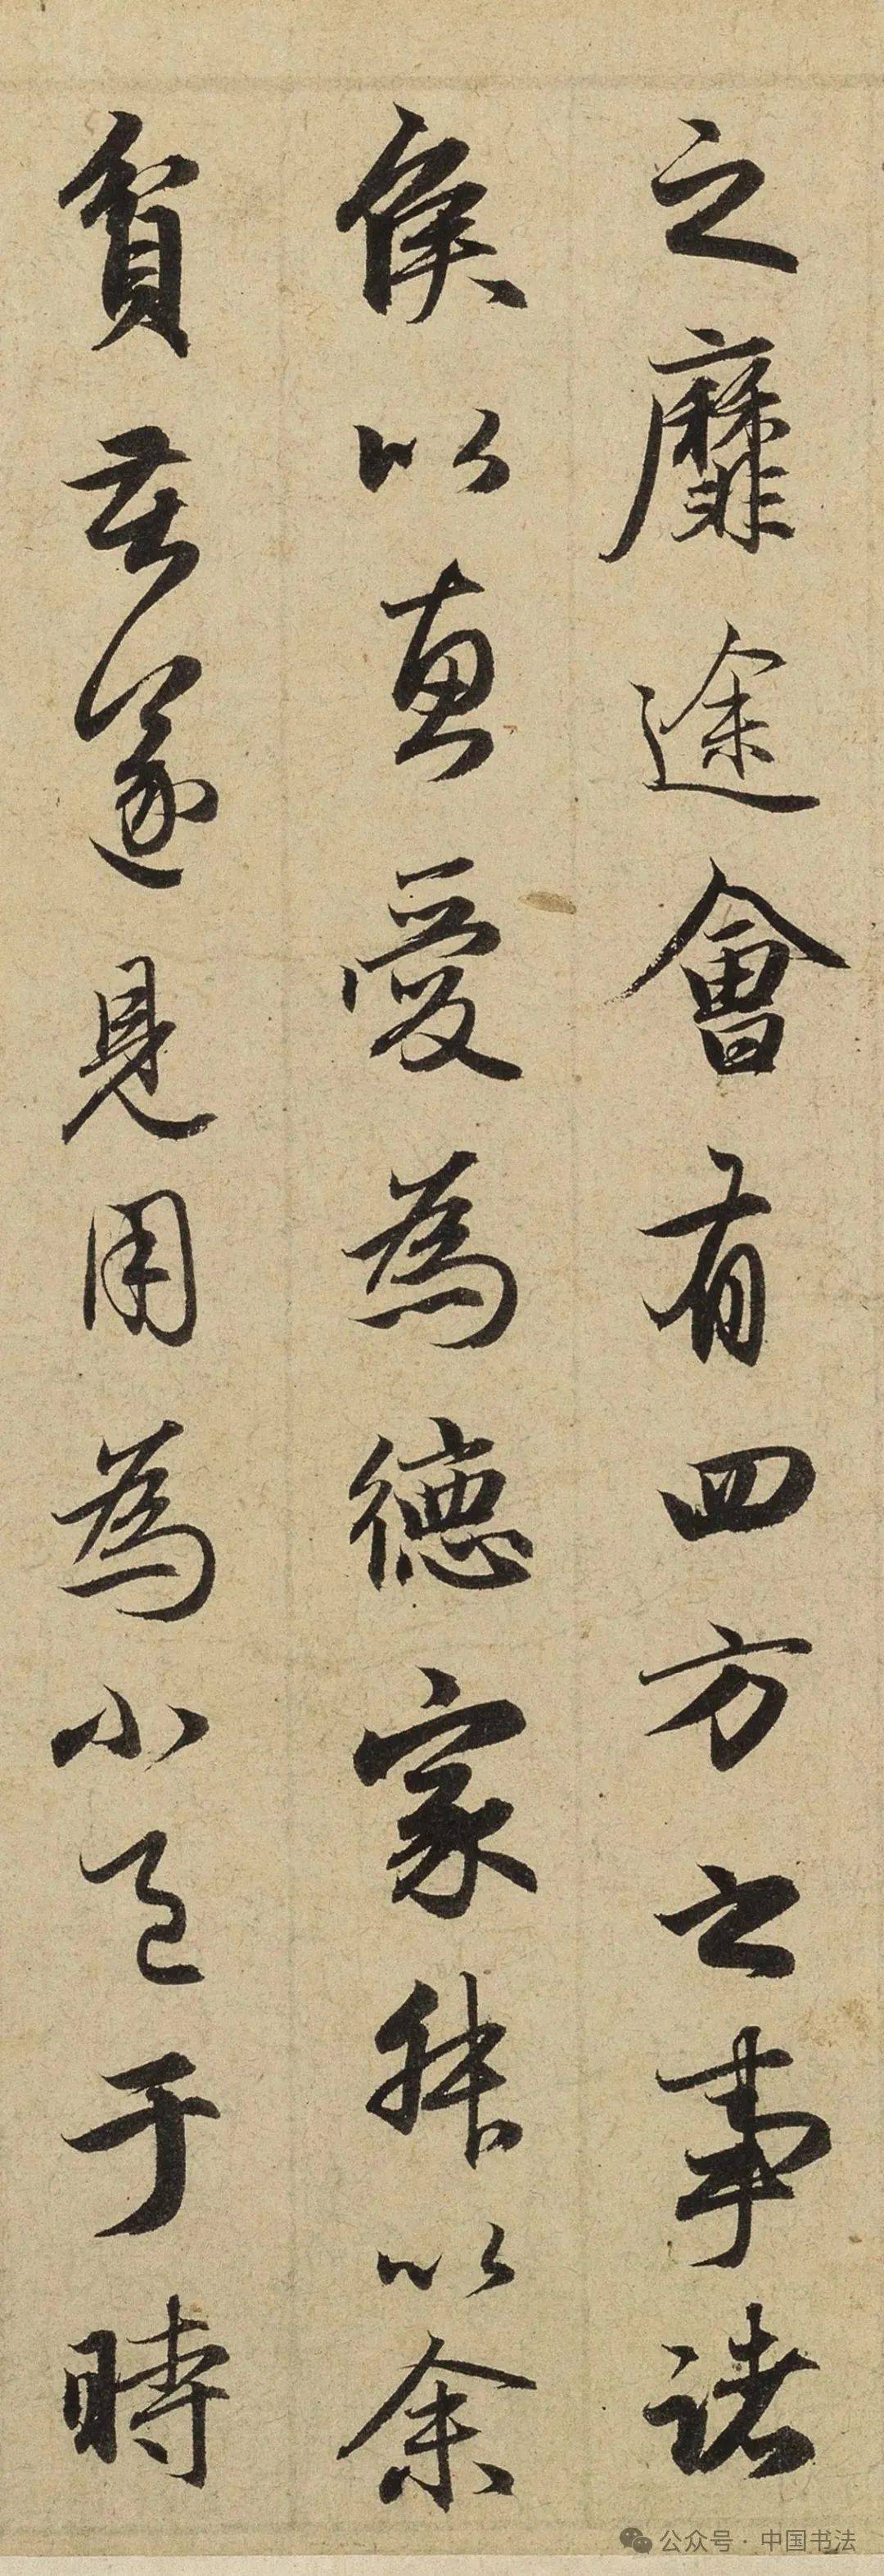 之靡途會有四方之事諸
侯以惠愛為德家叔以余
貧苦遂見用為小邑于時
公众号 · 中国书法